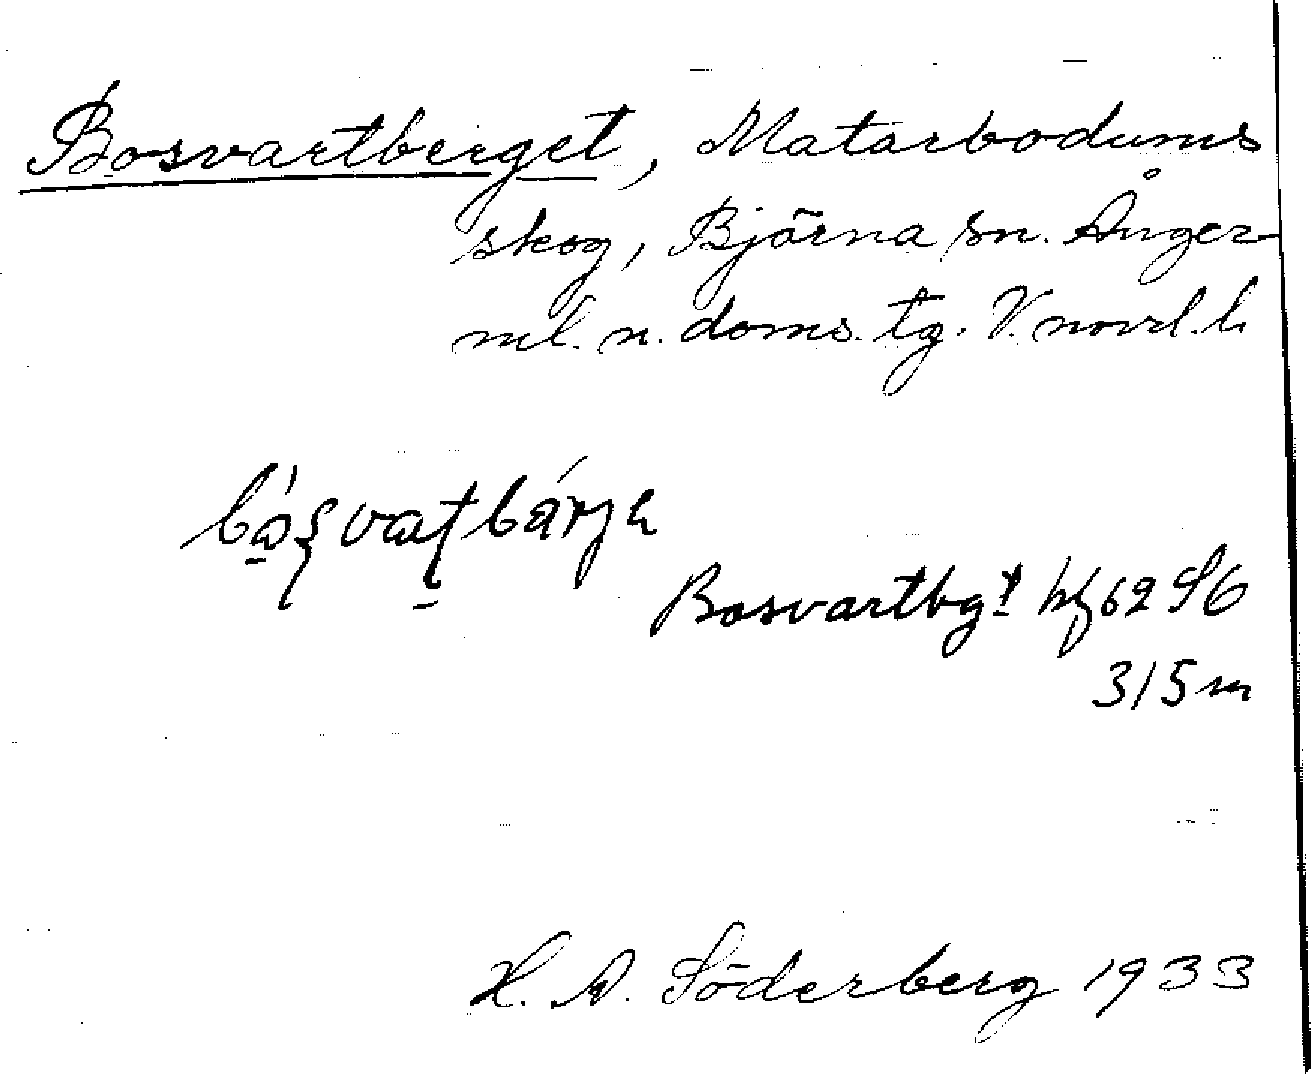 Bosvartberget, Matarbodums
skog, Björna sn. Ånger-
ml. n. doms. tg. V. norrl. l.
Bosvartbgt hf 62 S6
315 m
H. A. Söderberg 1933